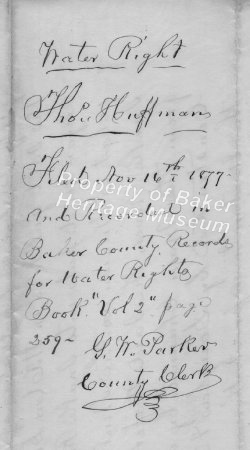 Water Right
Thos Huffman
Filed Nov 16th 1877
And Recorded in
Baker County Records
for Water Rights
Book "Vol 2" page
259-
G. W. Parker
County Clerk
Property of Baker
Heritage Museum